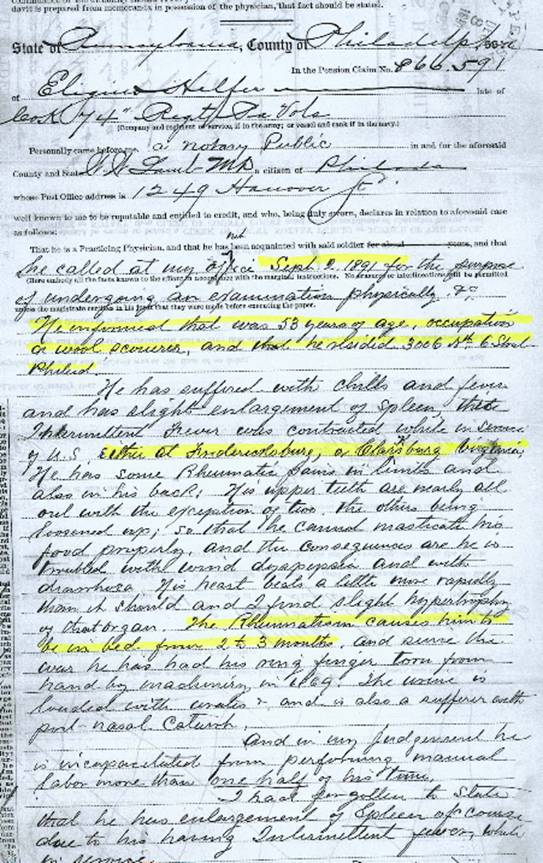 davit is prepared from memoranda in possession of the physician, that fact should be stated.
State of Pennsylvania, County of Philadelphia
In the Pension Claim No. 866.591
of Eligius Helfer late of
Co K 74" Regt Pa Vols
(Company and regiment of service, if in the army; or vessel and rank if in the navy.)
Personally came before me, a notary Public in and for the aforesaid
County and State Lamb MD a citizen of Philada
whose Post Office address is 1249 Hanover St.
well known to me to be reputable and entitled to credit, and who, being duly sworn, declares in relation to aforesaid case
as follows:
not
That he is a Practicing Physician, and that he has been acquainted with said soldier for about years, and that
he called at my office Sept. 2. 1891 for the purpose
(Here embody all the facts known to the affiant in accordance with the marginal instructions. No erasures or interlineations will be permitted
of undergoing an examination physically, &c.
unless the magistrate certifies in his jurat that they were made before executing the paper.
He informed that was 53 years of age, occupation
a wool scourer, and that he resided 3006 Nth 6 Street
Philad.
He has suffered with chills and fever
and has slight enlargement of spleen, this
Intermittent Fever was contracted while in Service
of U.S. Either at Fredericksburg, or Clarksburg Virginia,
He has some Rheumatic pains in limbs and
also in his back; His upper teeth are nearly all
out with the exception of two, the others being
loosened up; so that he cannot masticate his
food properly, and the consequences are he is
troubled with wind dyspepsia and with
diarrhoea His heart beats a little more rapidly
than it should and I find slight hypertrophy
of that organ The Rheumatism causes him to
be in bed from 2 to 3 months, and since the
war he has had his ring finger torn from
hand by machinery in 1869. The urine is
loaded with urates and is also a sufferer with
post-nasal Catarrh.
And in my Judgement he
is incapacitated from performing manual
labor more than one half of his time,
I had forgotten to State
that he has enlargement of Spleen of course
due to his having Intermittent fever, while
in service